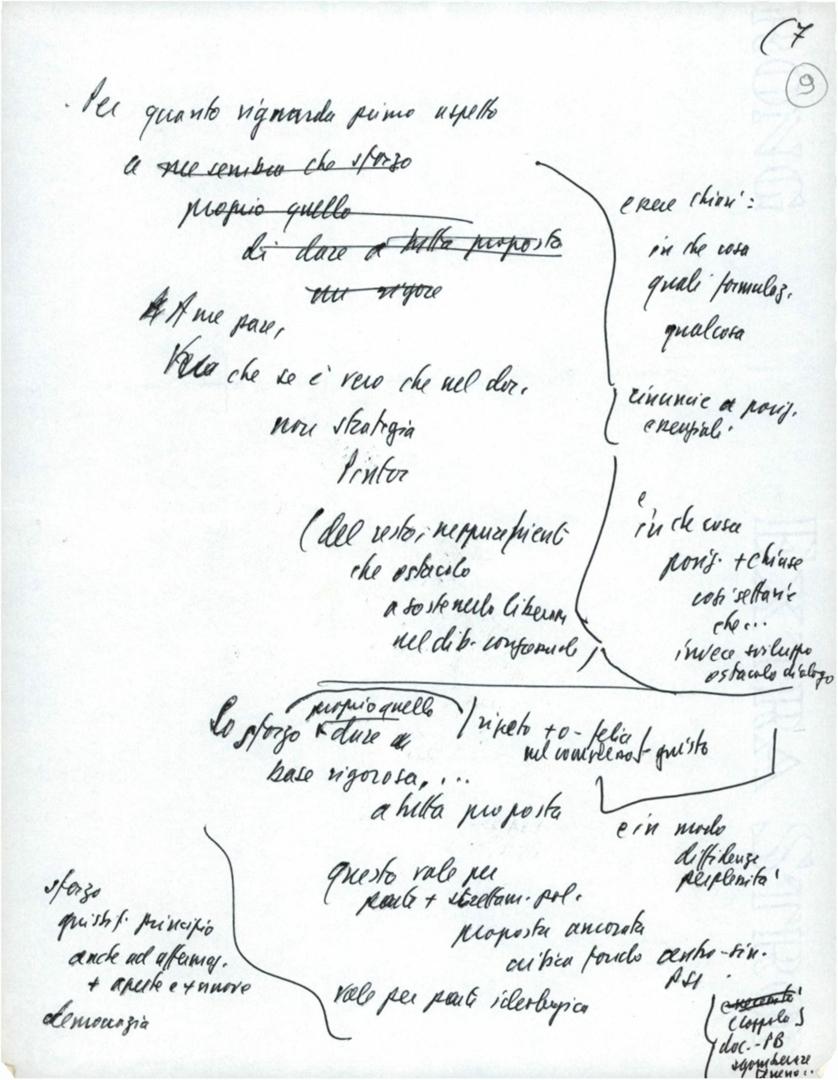 (7
9
Per quanto riguarda primo aspetto
a me sembra che sforzo
proprio quello
di dare a tutta proposta
un rigore
A me pare,
che se è vero che nel doc.
non strategia
Pintor
(del resto,
che ostacolo
a sostenerlo
nel dib.
essere chiari:
in che cosa
quali formulaz.
qualcosa
rinuncie a posiz.
essenziali
e
in che cosa
posiz. + chiuse
così settarie
che...
invece sviluppo
ostacolo dialogo
Lo sforzo proprio quello
dare a
base rigorosa, ...
a tutta proposta
ripeto + o - felice
giusto
e in modo
diffidenze
perplessità
questo vale per
parte + strettam. pol.
proposta ancorata
critica fondo centro-sin.
PSI
vale per parte ideologica
sforzo
principio
anche ad affermaz.
+ aperte e + nuove
democrazia
doc. - PB
sgomberare
terreno..